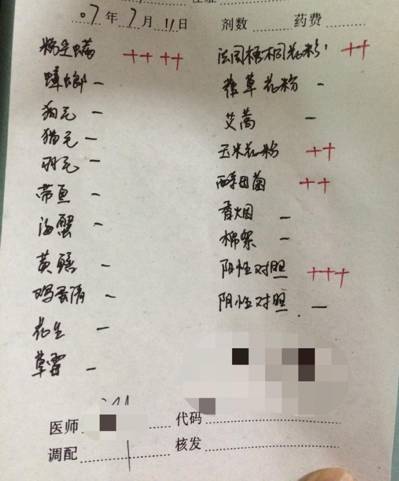 07年7月11日 剂数 药费
++ ++
蟑螂 −
狗毛 −
猫毛 −
羽毛 −
带鱼 −
海蟹 −
黄鳝 −
鸡蛋清 −
花生 −
草莓 −
法国梧桐花粉 ++
葎草花粉 −
艾蒿 −
玉米花粉 ++
酵母菌 ++
香烟 −
棉絮 −
阳性对照 +++
阴性对照 −
医师 代码
调配 核发